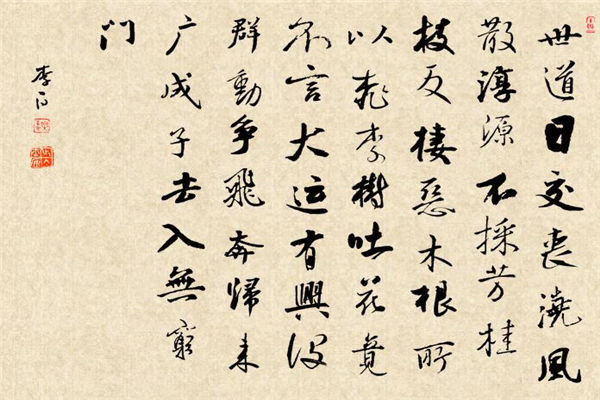 世道日交喪澆風
散淳源不採芳桂
枝反棲惡木根所
以桃李樹吐花竟
不言大运有興没
群動争飛奔歸来
广成子去入無窮
门
李白